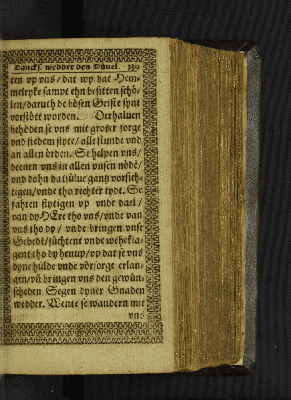 Dancks. wedder den Düuel. 139
ten vp vns / dat wy dat Hem-
melryke sampt ehn besitten schö-
len / daruth de bösen Geiste synt
vorstött worden. Derhaluen
behöden se vns mit groter sorge
vnd stedem flyte / alle stunde vnd
an allen örden. Se helpen vns /
deenen vns in allen vnsen nöde /
vnd dohn datsülue gantz vorsich-
tigen / vnde tho rechter tydt. Se
fahren flytigen vp vnde dael /
van dy HEre tho vns / vnde van
vns tho dy / vnde bringen vnse
Gebedt / süchtent vnde wehekla-
gent tho dy henup / vp dat se vns
dyne hülde vnde vörsorge erlan-
gen / vñ bringen vns den gewün-
scheden Segen dyner Gnaden
wedder. Wente se wandern mit
vn-